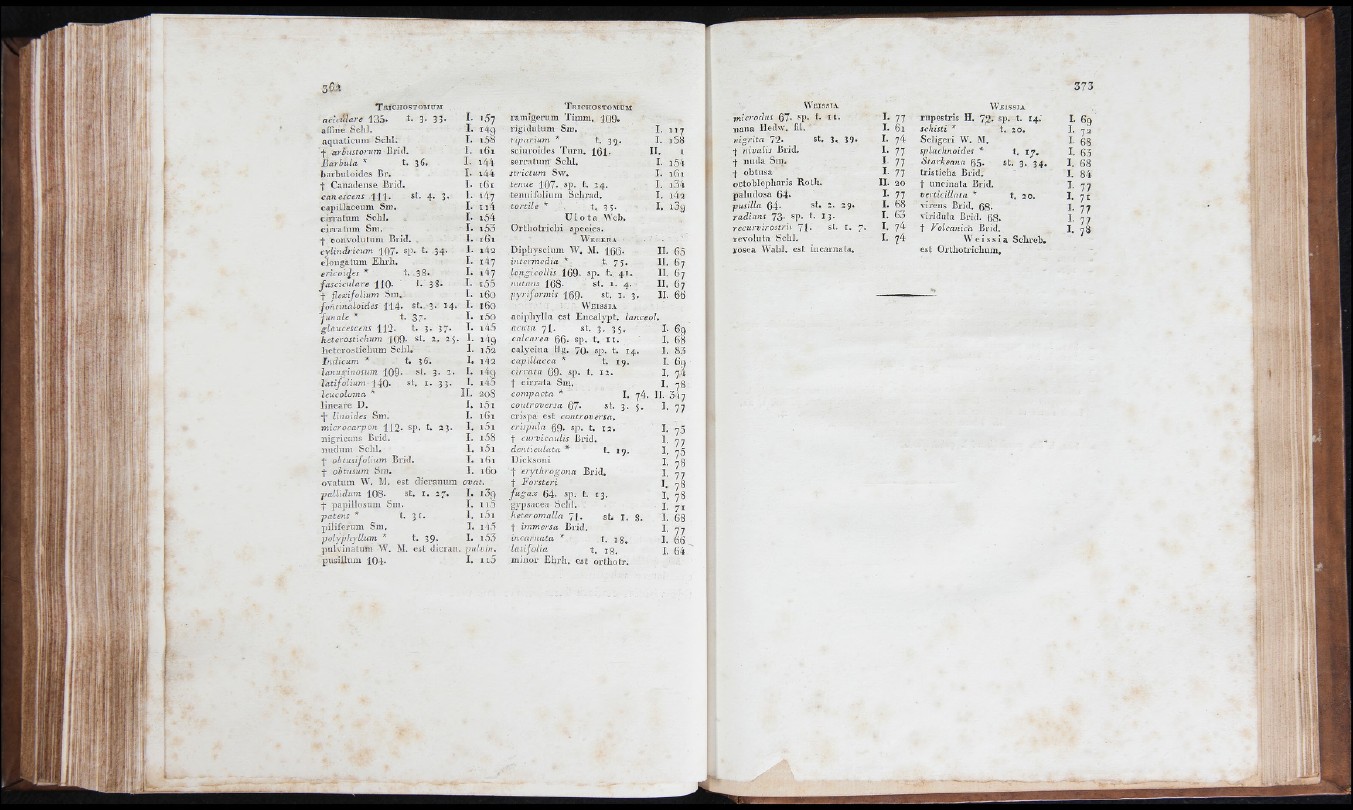 362
TRICHOSTOMUM
aciculare 135. t. 3. 33. I. 157
affine Schl. I. 149
aquaticum Schl. I. 158
† arbustorum Brid. I. 161
Barbula * t. 36. I. 144
barbuloides Br. I. 144
† Canadense Brid. I. 161
canescens 111. st. 4. 3. I. 147
capillaceum Sm. I. 114
cirratum Schl. I. 154
cirratum Sm. I. 153
† convolutum Brid. I. 161
cylindricum 107. sp. t. 34. I. 142
elongatum Ehrh. I. 147
ericoides * t. 38. I. 147
fasciculare 110. t. 38. I. 155
† flexifolium Sm. I. 160
fontinaloides 114. st. 3. 14. I. 160
funale * t. 37. I. 150
glaucescens 112. t. 3. 37. I. 145
heterostichum 109. st. 2. 25. I. 149
heterostichum Schl. I. 152
Indicum * t. 36. I. 142
lanuginosum 109. st. 3. 2. I. 149
latifolium 140. st. 1. 33. I. 145
leucoloma * II. 208
lineare D. I. 151
† linoides Sm. I. 161
microcarpon 112. sp. t. 23. I. 151
nigricans Brid. I. 158
nudum Schl. I. 151
† obtusifolium Brid. I. 161
† obtusum Sm. I. 160
ovatum W. M. est dicranum ovat.
pallidum 108. st. 1. 27. I. 139
† papillosum Sm. I. 115
patens * t. 31. I. 151
piliferum Sm. I. 145
polyphyllum * t. 39. I. 153
pulvinatum W. M. est dicran. pulvin.
pusillum 104. I. 115
TRICHOSTOMUM
ramigerum Timm. 109.
rigidulum Sm. I. 117
riparium * t. 39. I. 158
sciuroides Turn. 161. II. 1
serratum Schl. I. 154
strictum Sw. I. 161
tenue 107. sp. t. 24. I. 134
tenuifolium Schrad. I. 142
tortile * t. 35. I. 139
Ulota Web.
Orthotrichi species.
WEBERA
Diphyscium W. M. 166. II. 65
intermedia * t. 75. II. 67
longicollis 169. sp. t. 41. II. 67
nutans 168. st. 1. 4. II. 67
pyriformis 169. st. 1. 3. II. 66
WEISSIA
aciphylla est Encalypt. lanceol.
acuta 71. st. 3. 35. I. 69
calcarea 66. sp. t. 11. I. 68
calycina Hg. 70. sp. t. 14. I. 83
capillacea * t. 19. I. 69
cirrata 69. sp. t. 12. I. 74
† cirrata Sm. I. 78
compacta * I. 74. II. 347
controversa 67. st. 3. 5. I. 77
crispa est controversa.
crispula 69. sp. t. 12. I. 75
† curvicaulis Brid. I. 77
denticulata * t. 19. I. 75
Dicksoni I. 78
† erythrogona Brid. I. 77
† Forsteri I. 78
fugax 64. sp. t. 13. I. 78
gypsacea Schl. I. 71
heteromalla 71. st. 1. 8. I. 68
† immersa Brid. I. 77
incarnata * t. 18. I. 66
latifolia t. 18. I. 64
minor Ehrh. est orthotr.
373
WEISSIA
microdus 67. sp. t. 11. I. 77
nana Hedw. fil. I. 61
nigrita 72. st. 3. 39. I. 74
† nivalis Brid. I. 77
† nuda Sm. I. 77
† obtusa I. 77
octoblepharis Roth. II. 20
paludosa 64. I. 77
pusilla 64. st. 2. 29. I. 68
radians 73. sp. t. 13. I. 63
recurvirostris 71. st. 1. 7. I. 74
revoluta Schl. I. 74
rosea Wahl. est incarnata.
WEISSIA
rupestris H. 72. sp. t. 14. I. 69
schisti * t. 20. I. 72
Seligeri W. M. I. 68
splachnoides * t. 17. I. 63
Starkeana 65. st. 3. 34. I. 68
tristicha Brid. I. 84
† uncinata Brid. I. 77
verticillata * t. 20. I. 71
virens Brid. 68. I. 77
viridula Brid. 68. I. 77
† Volcanica Brid. I. 78
Weissia Schreb.
est Orthotrichum.